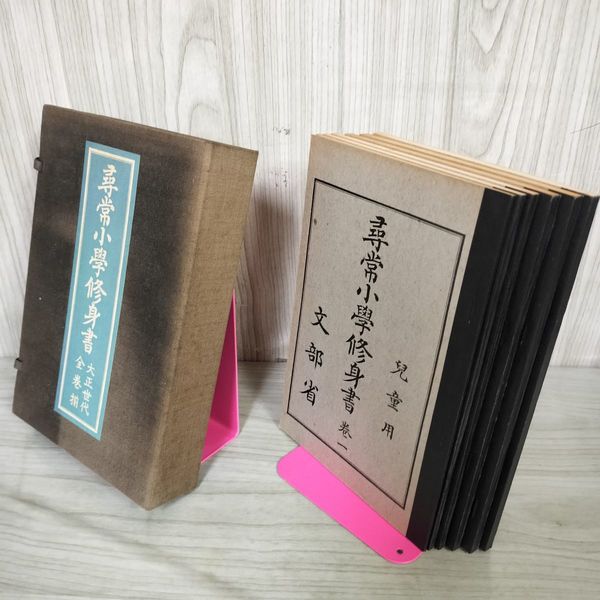 尋常小學修身書
大正世代
全巻揃
兒童用
尋常小學修身書 卷一
文部省